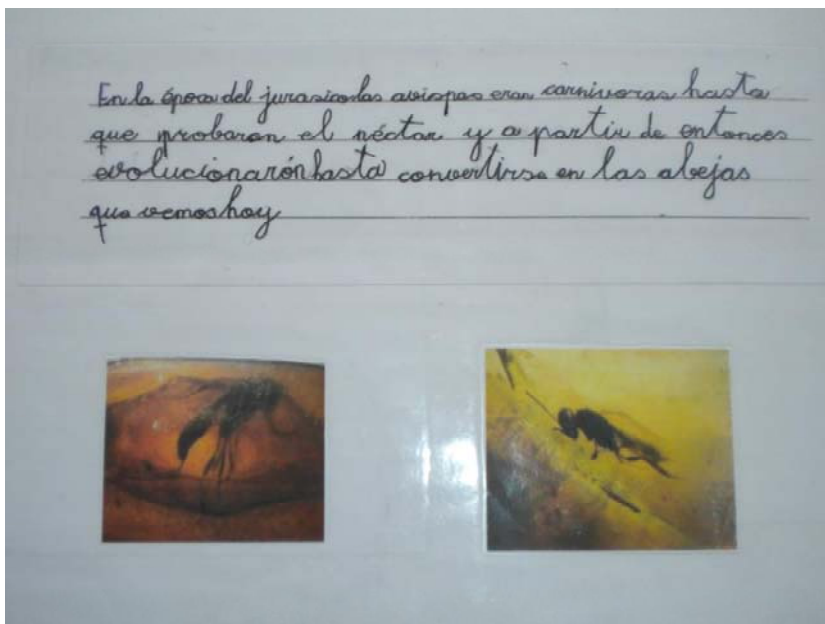 En la época del jurasico las avispas eran carnivoras hasta
que probaron el néctar y a partir de entonces
evolucionarón hasta convertirse en las abejas
que vemos hoy